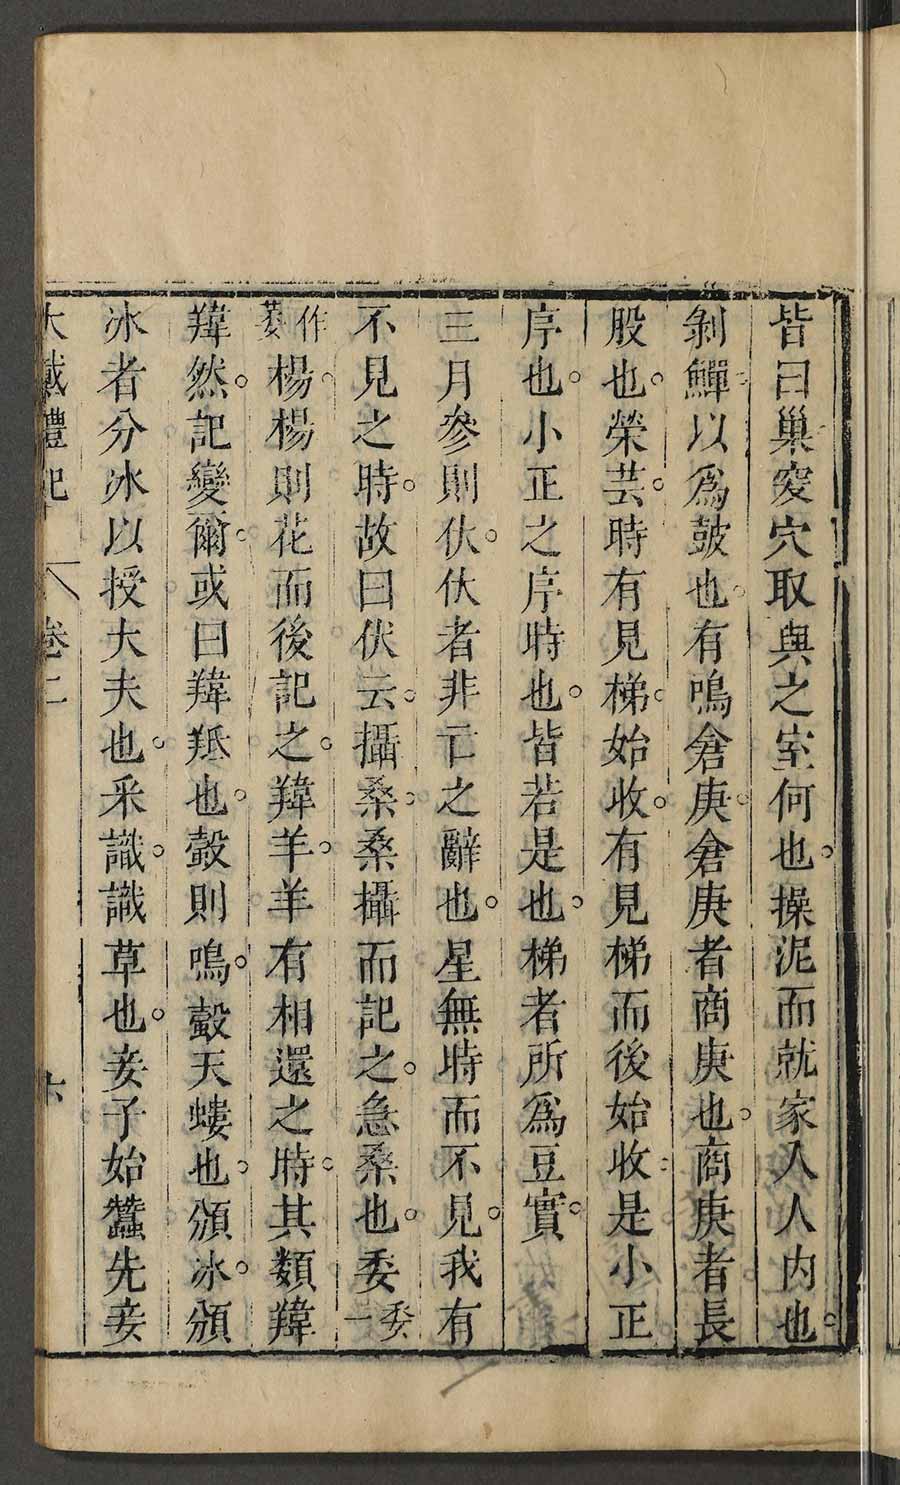 皆曰巢突穴取與之室何也。操泥而就家入人内也。
剝鱓以爲鼓也。有鳴倉庚。倉庚者商庚也。商庚者長
股也。榮芸。時有見稊。始收。有見稊而後始收。是小正
序也。小正之序時也。皆若是也。稊者所爲豆實。
三月參則伏。伏者非亡之辭也。星無時而不見。我有
不見之時。故曰伏云。攝桑。桑攝而記之。急桑也。委一委
作萎楊。楊則花而後記之。羵羊。羊有相還之時。其類羵
羵然。記變爾。或曰羵羝也。螜則鳴。螜天螻也。頒冰。頒
冰者分冰以授大夫也。釆識。識草也。妾子始蠶先妾
大戴禮記 卷二 六